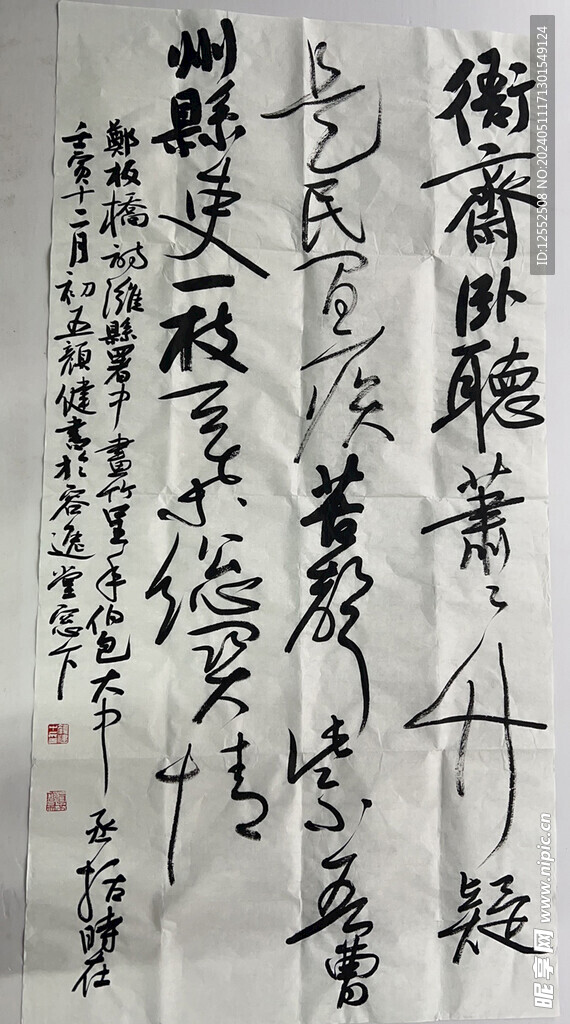 衙齋卧聽蕭〻竹疑
是民間疾苦聲些小吾曹
州縣吏一枝一葉總關情
鄭板橋詩濰縣署中畫竹呈年伯包大中丞括時在
壬寅十二月初五顏健書於容逸堂窓下
ID:12552508 NO:20240511171301549124
昵享网 www.nipic.cn